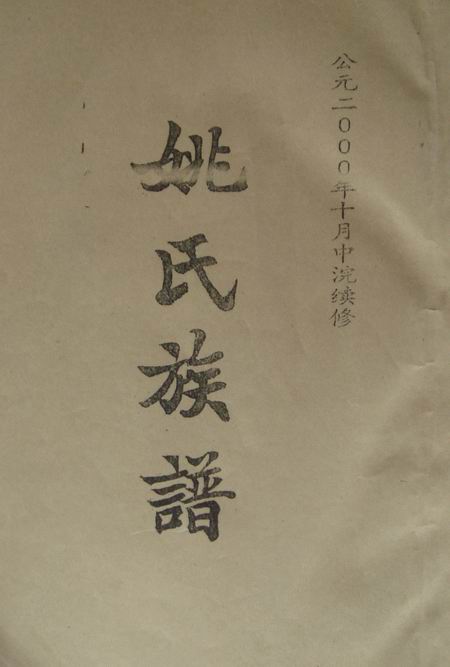 公元二〇〇〇年十月中浣续修
姚氏族譜